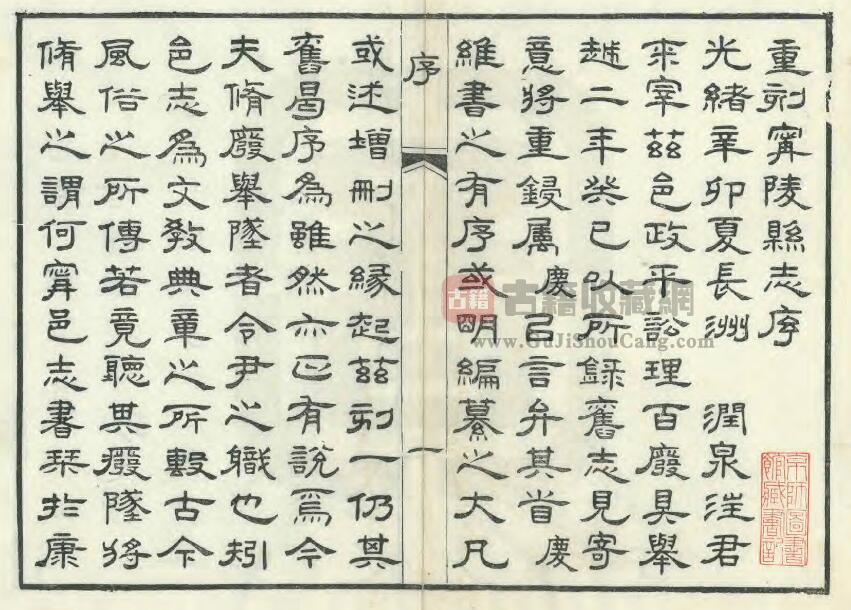 重刻甯陵縣志序
光緒辛卯夏長洲 潤泉汪君
來宰茲邑政平訟理百廢具舉
越二年癸巳以所錄舊志見寄
意將重鋟属慶㠯言弁其首慶
維書之有序或明編纂之大凡
序 一
或述增刪之緣起茲刻一仍其
舊曷序為雖然亦正有說焉今
夫脩廢舉墜者令尹之職也矧
邑志為文教典章之所繫古今
風俗之所傳若竟聽其廢墜將
脩舉之謂何甯邑志書栞於康
古籍
古籍收藏網
www.GuJiShouCang.com